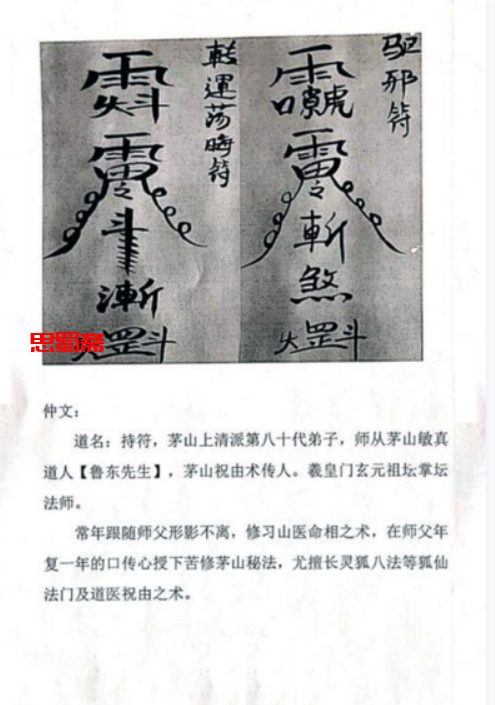 驱邪符
雷
令
斬
煞
火罡斗
轉運荡晦符
雷
令
斗
漸
火罡斗
思蜀斋
仲文：
道名：持符，茅山上清派第八十代弟子，师从茅山敏真
道人【鲁东先生】，茅山祝由术传人。羲皇门玄元祖坛掌坛
法师。
常年跟随师父形影不离，修习山医命相之术，在师父年
复一年的口传心授下苦修茅山秘法，尤擅长灵狐八法等狐仙
法门及道医祝由之术。